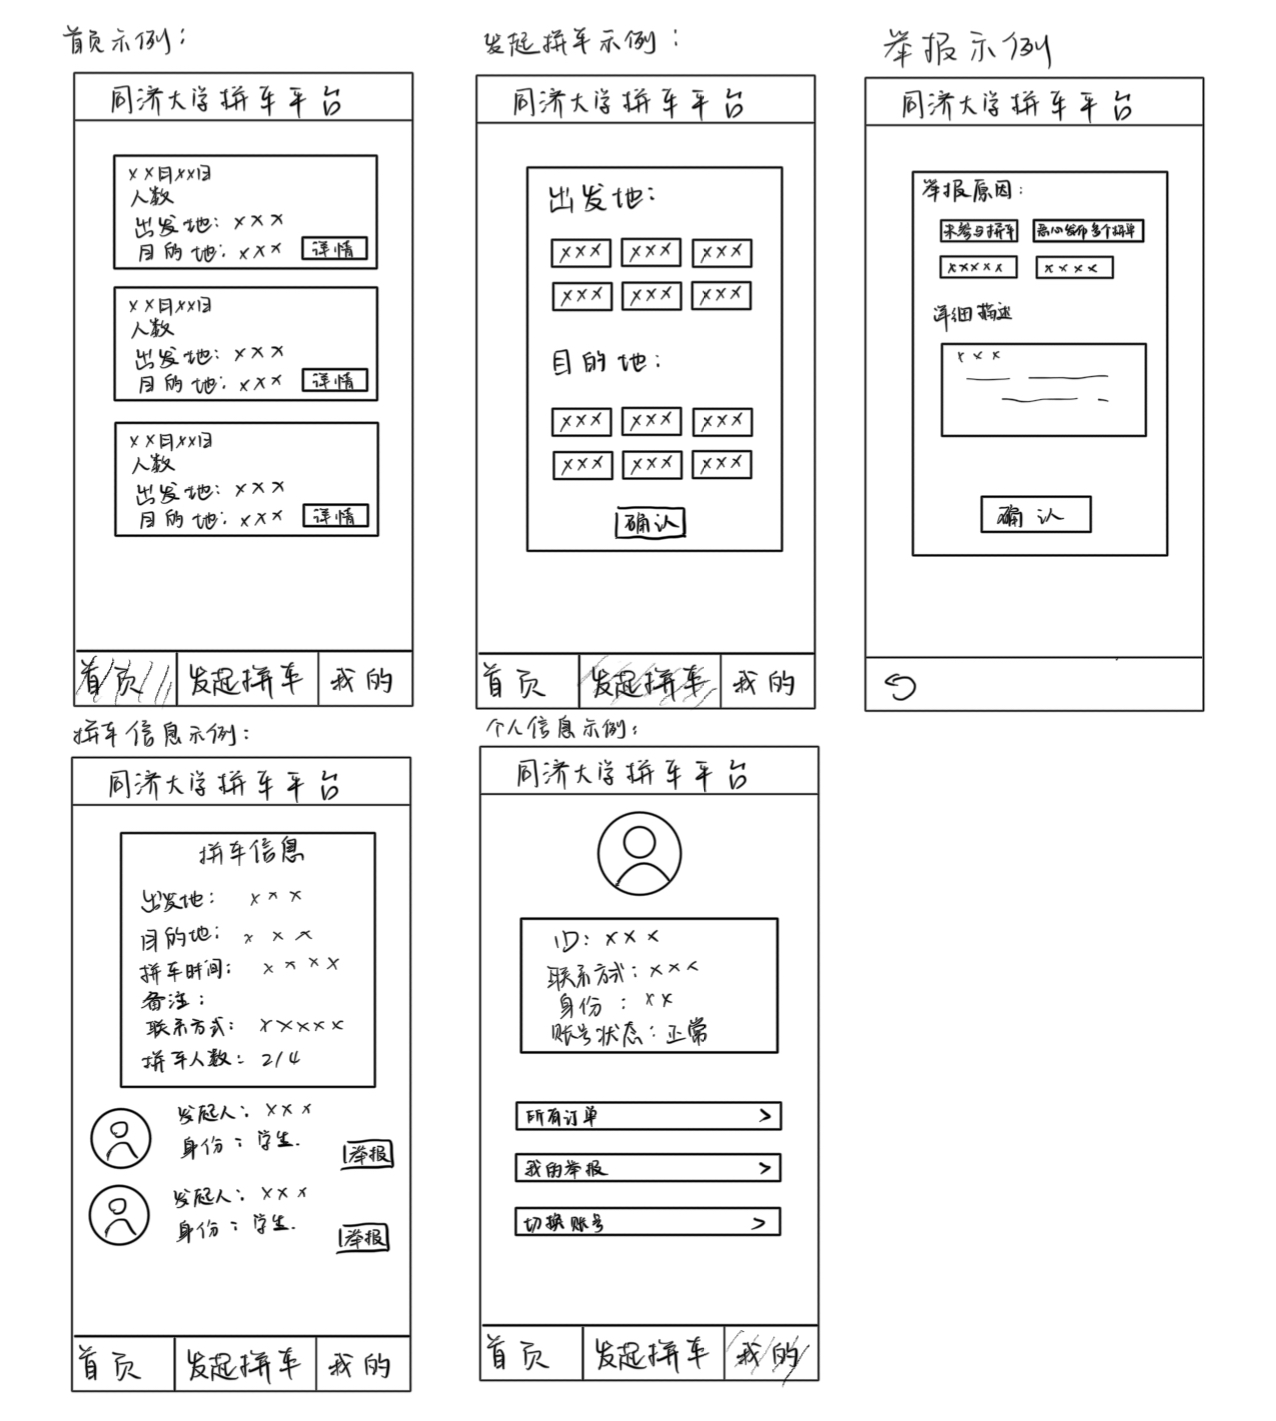 首页示例：
同济大学拼车平台
××月××日
人数
出发地：×××
目的地：×××
详情
××月××日
人数
出发地：×××
目的地：×××
详情
××月××日
人数
出发地：×××
目的地：×××
详情
首页
发起拼车
我的
发起拼车示例：
同济大学拼车平台
出发地：
××× ××× ×××
××× ××× ×××
目的地：
××× ××× ×××
××× ××× ×××
确认
首页
发起拼车
我的
举报示例
同济大学拼车平台
举报原因：
未参与拼车
恶心发布多个拼单
×××××
××××
详细描述
×××
确认
拼车信息示例：
同济大学拼车平台
拼车信息
出发地：×××
目的地：×××
拼车时间：××××
备注：
联系方式：×××××
拼车人数：2/4
发起人：×××
身份：学生.
举报
发起人：×××
身份：学生.
举报
首页
发起拼车
我的
个人信息示例：
同济大学拼车平台
ID：×××
联系方式：×××
身份：××
账号状态：正常
所有订单 >
我的举报 >
切换账号 >
首页
发起拼车
我的